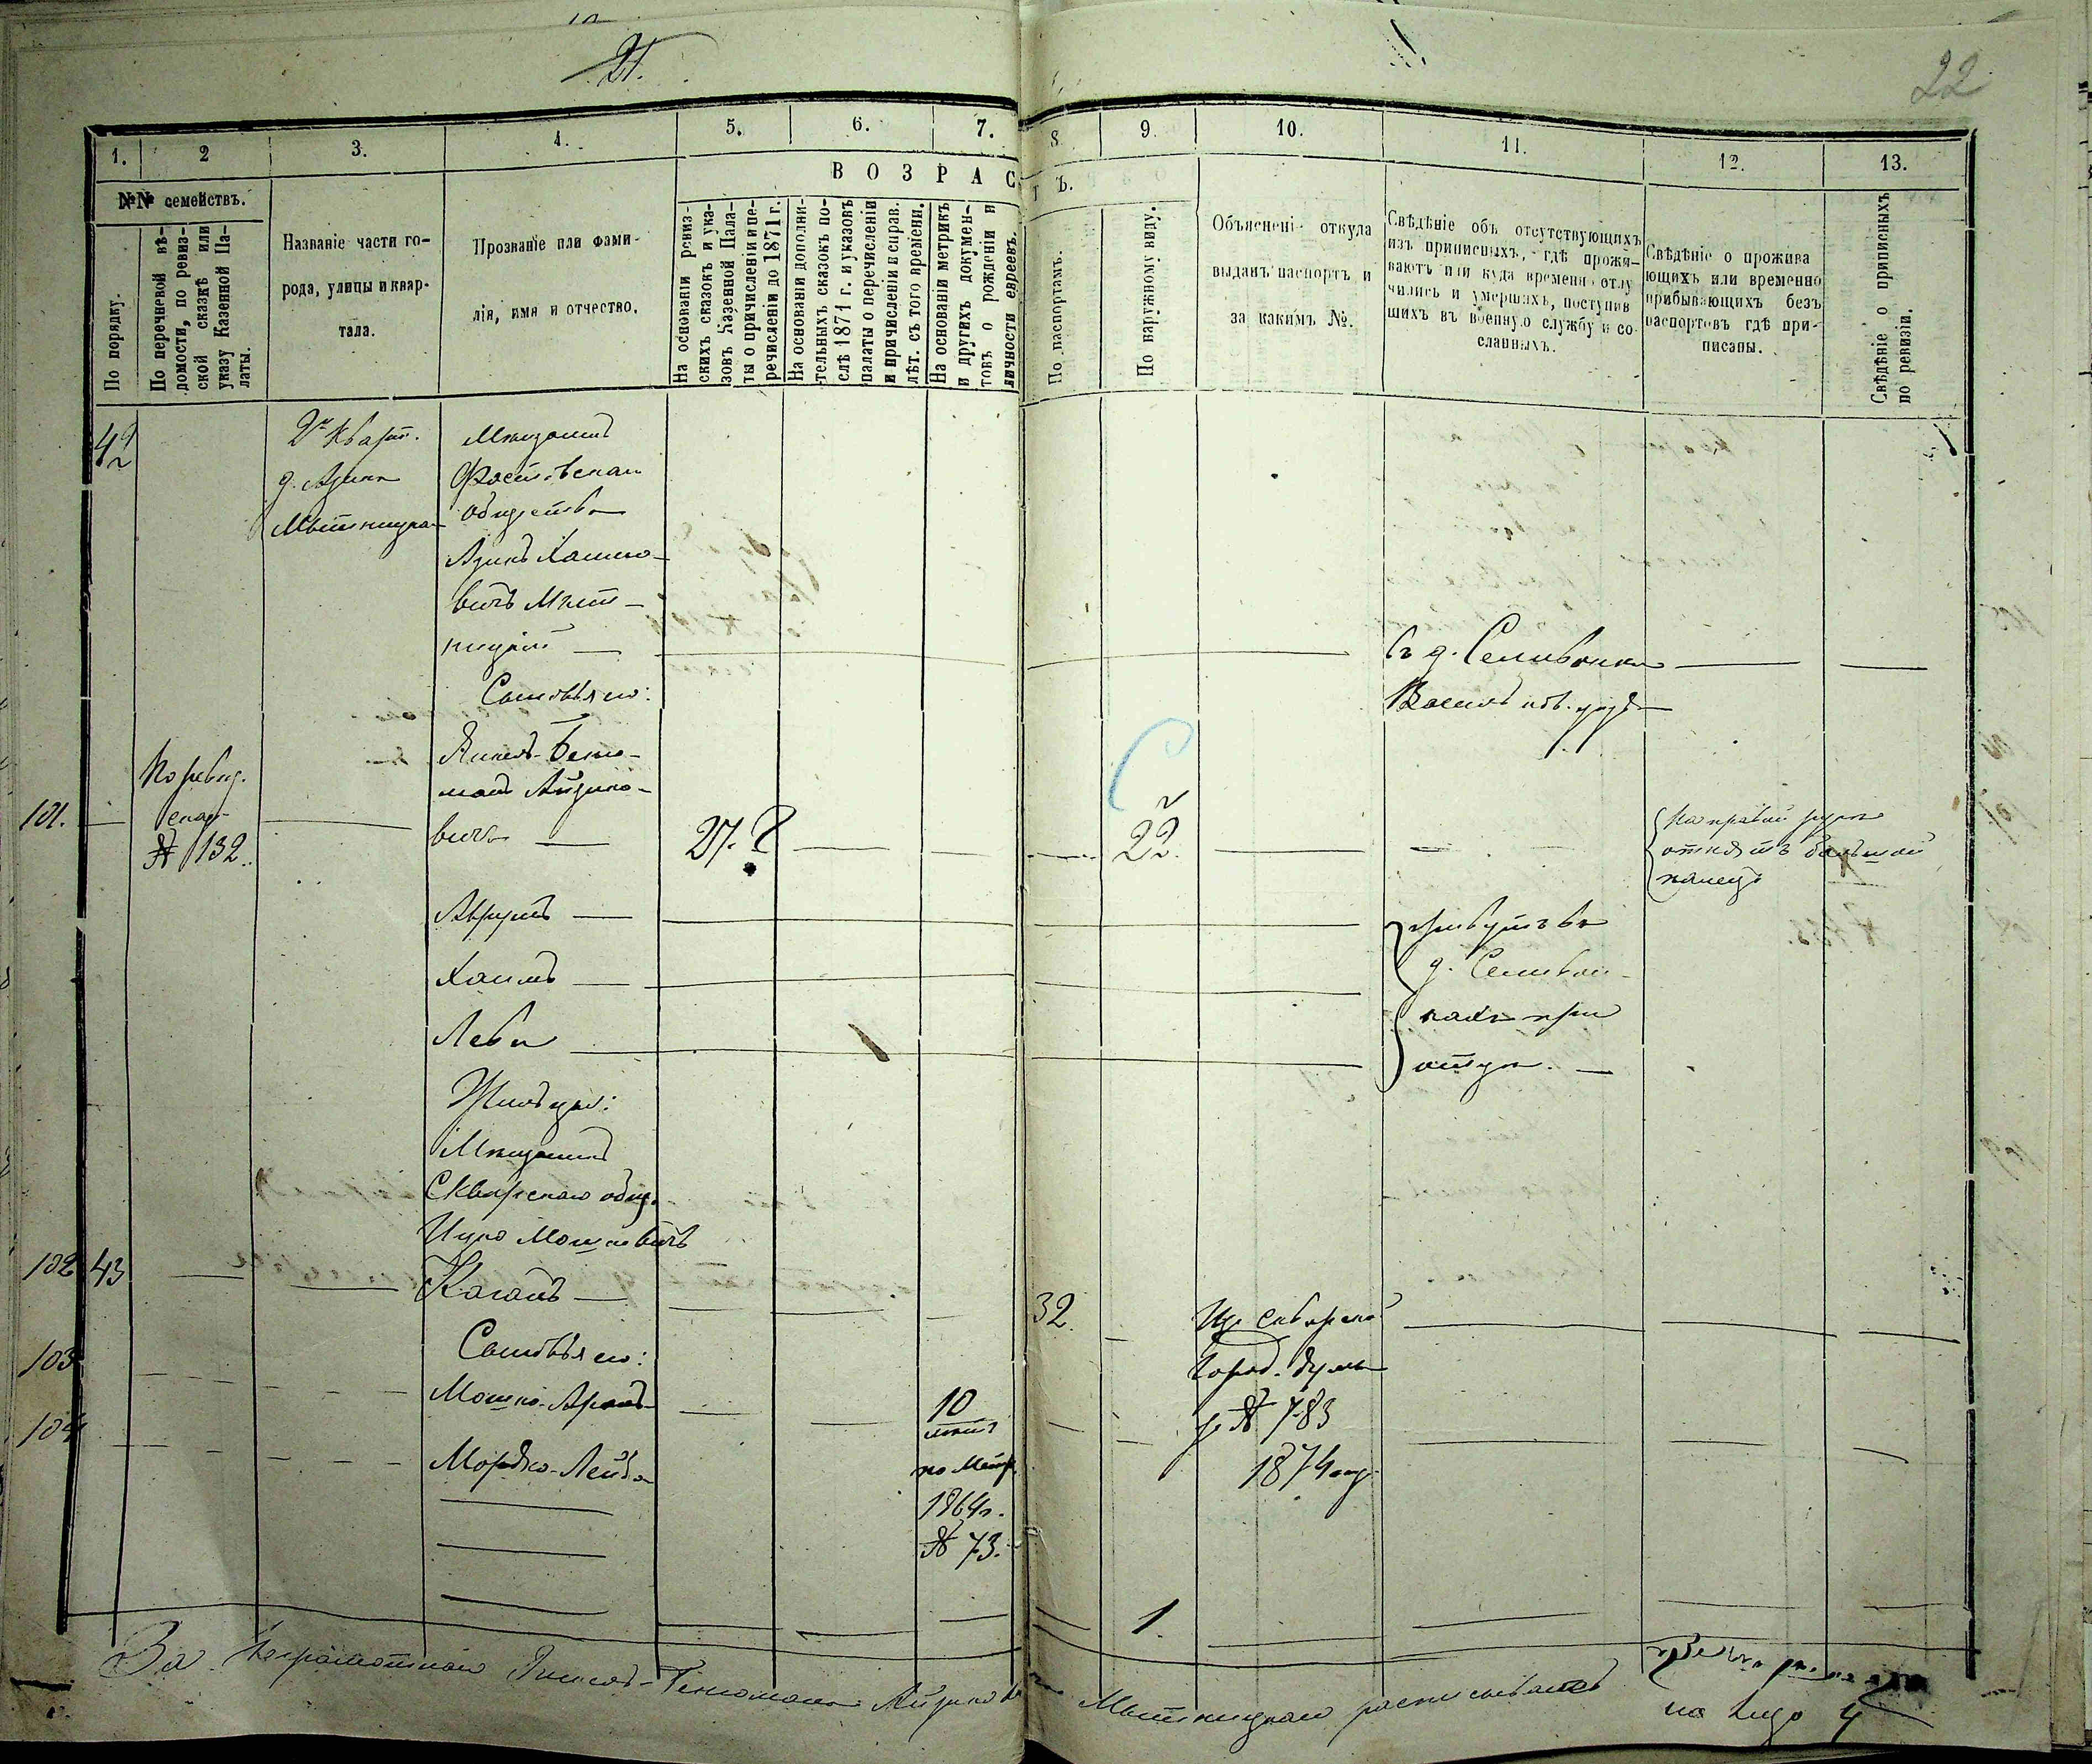 21.
22
1.
2
3.
4.
5.
6.
7.
8
9.
10.
11.
12.
13.
№№ семействъ.
В О З Р А С
Т Ъ.
По порядку.
По перечневой вѣ-
домости, по ревиз-
ской сказкѣ или
указу Казенной Па-
латы.
Названіе части го-
рода, улицы и квар-
тала.
Прозваніе или фами-
лія, имя и отчество.
На основаніи ревиз-
скихъ сказокъ и ука-
зовъ Казенной Пала-
ты о причисленіи и пе-
речисленіи до 1871 г.
На основаніи дополни-
тельныхъ сказокъ по-
слѣ 1871 г. и указовъ
палаты о перечисленіи
и причисленіи и справ.
лѣт. съ того времени.
На основаніи метрикъ
и другихъ докумен-
товъ о рожденіи и
личности евреевъ.
По паспортамъ.
По наружному виду.
Объясненіе откуда
выданъ паспортъ и
за какимъ №.
Свѣдѣніе объ отсутствующихъ
изъ приписныхъ, гдѣ прожи-
ваютъ или куда временно отлу
чились и умершихъ, поступив
шихъ въ военную службу и со-
сланныхъ.
Свѣдѣніе о прожива
ющихъ или временно
прибывающихъ безъ
паспортовъ гдѣ при-
писаны.
Свѣдѣніе о приписныхъ
по ревизіи.
42
2й Кварт.
д. Азика
Мытницкаго
Мѣщанинъ
Фастовскаго
общества
Азикъ Хаимо-
вичъ Мыт-
ницкій
Въ д. Селивонки
Васильков. уѣзда
Сыновья его:
101.
По ревиз.
сказ.
№ 132.
Янкель-Беню-
минъ Айзико-
вичъ
27.
22.
На правой рукѣ
отнятъ большой
палецъ
Аврумъ
Хаимъ
Лейба
живутъ въ
д. Селивон-
кахъ при
отцѣ.
Жильцы:
Мѣщанинъ
Сквирскаго общ.
Ицко Мошковичъ
102
43
Каганъ
32.
Из Сквирской
Город. думы
за № 783
1874 год.
Сыновья его:
103
Мошко-Аронъ
10
лѣтъ
по Метр.
1864 г.
№ 73.
104
Мордко-Лейба
1.
За неграмотнаго Янкель-Бенюмина Айзикова Мытницкаго расписывался
на лицо 4